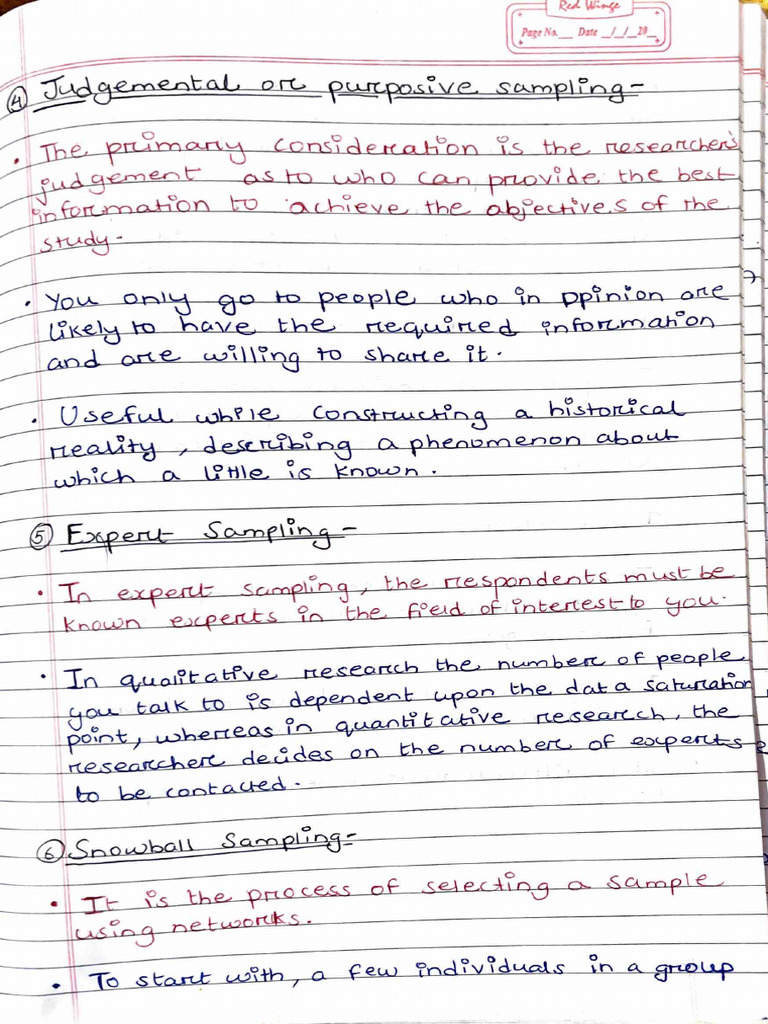 Red Wings
Page No.___ Date __/__/__20__
④ Judgemental or purposive sampling-
• The primary consideration is the researcher's
judgement as to who can provide the best
information to achieve the abjectives of the
study-
• You only go to people who in opinion are
likely to have the required information
and are willing to share it.
• Useful while constructing a historical
reality, describing a phenomenon about
which a little is known.
⑤ Expert Sampling-
• In expert sampling, the respondents must be
known experts in the field of interest to you.
• In qualitative research the number of people
you talk to is dependent upon the data saturation
point, whereas in quantitative research, the
researcher decides on the number of experts
to be contacted.
⑥ Snowball Sampling-
• It is the process of selecting a sample
using networks.
• To start with, a few individuals in a group